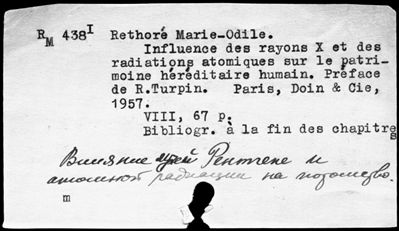 R_M 438^I Rethoré Marie-Odile.
Influence des rayons X et des
radiations atomiques sur le patri-
moine héréditaire humain. Préface
de R.Turpin. Paris, Doin & Cie,
1957.
VIII, 67 p.
Bibliogr. à la fin des chapitres
Влияние лучей Рентгена и
атомной радиации на потомство.
m